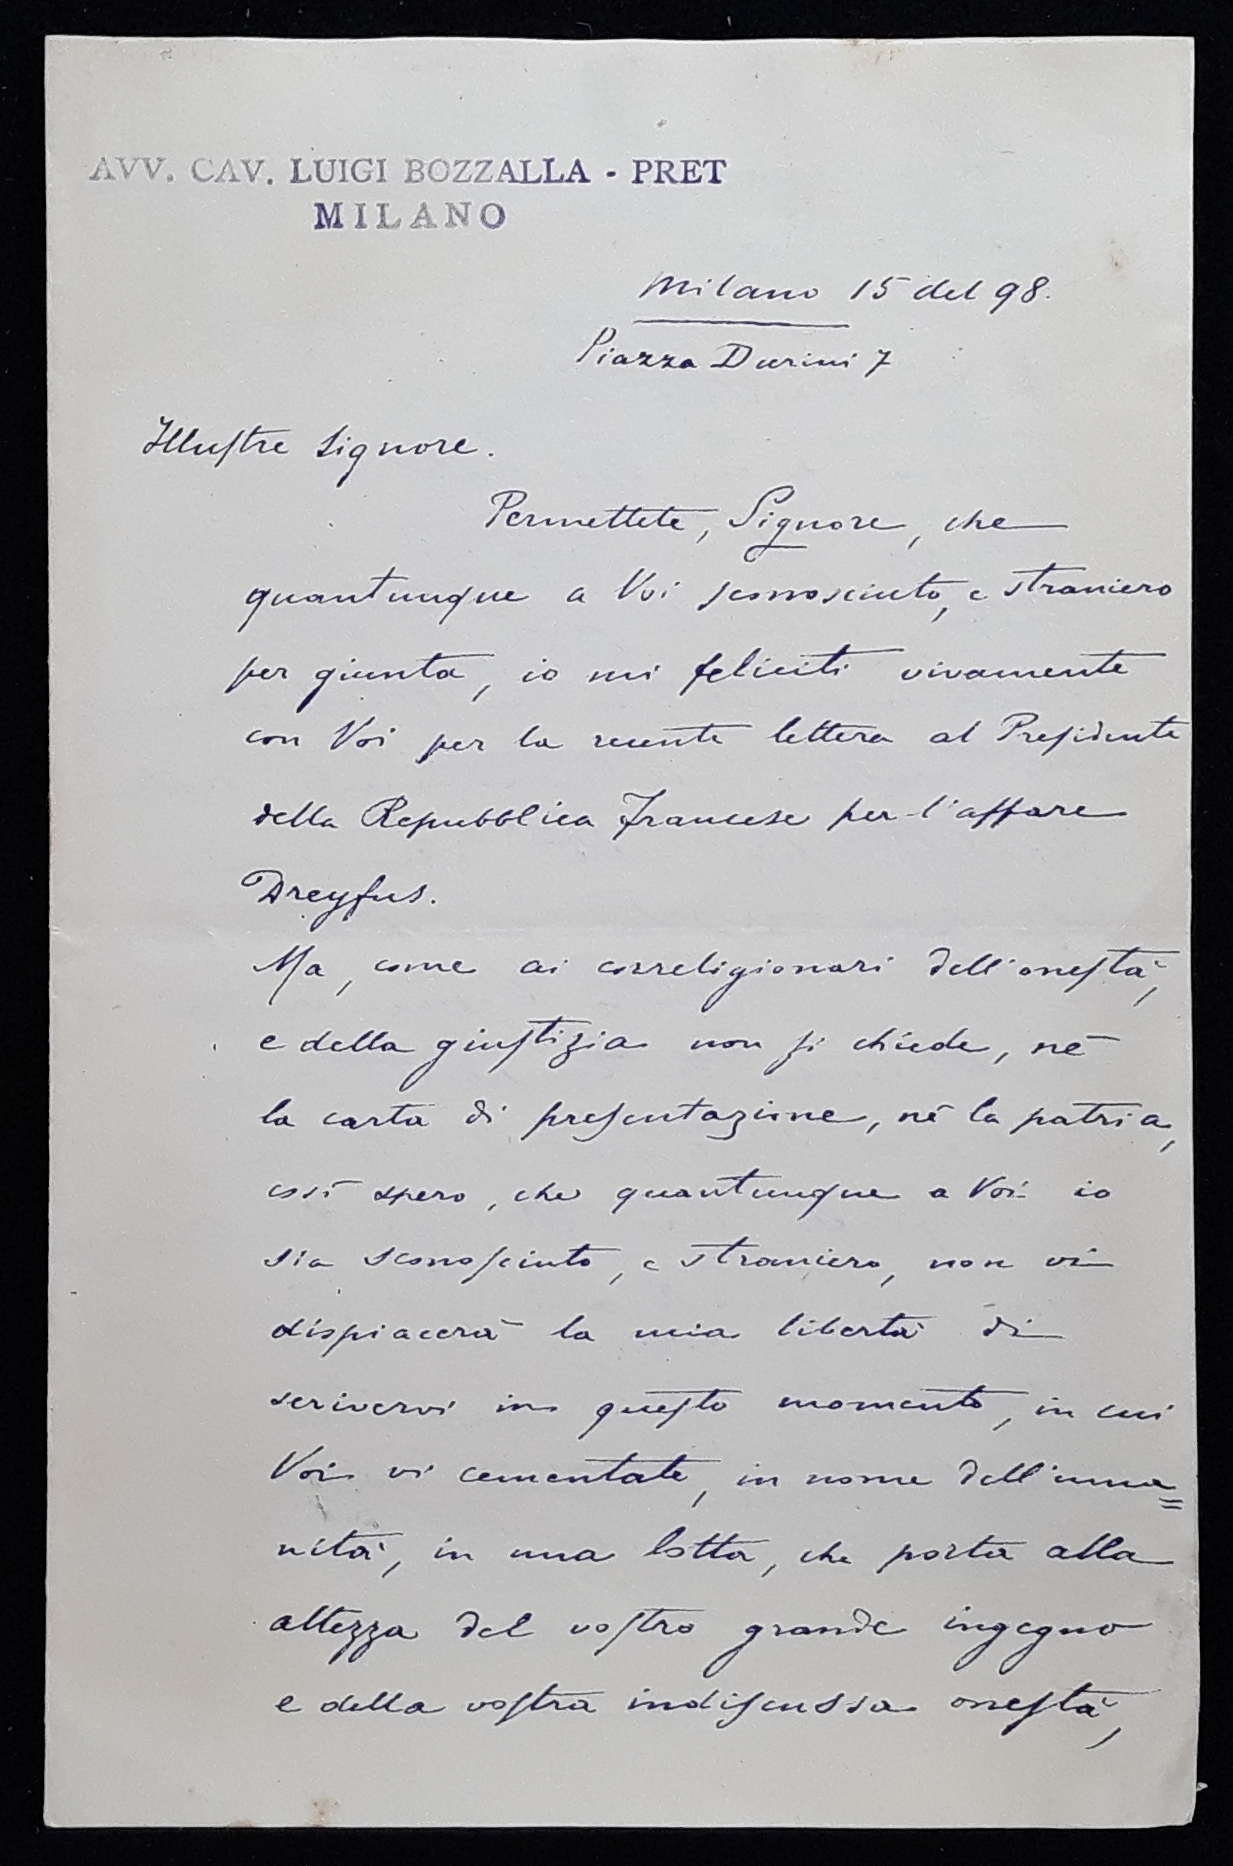 AVV. CAV. LUIGI BOZZALLA - PRET
MILANO
Milano 15 del 98.
Piazza Durini 7
Illustre Signore.
Permettete, Signore, che
quantunque a Voi sconosciuto, e straniero
per giunta, io mi feliciti vivamente
con Voi per la recente lettera al Presidente
della Repubblica Francese per l'affare
Dreyfus.
Ma, come ai correligionari dell'onestà,
e della giustizia non si chiede, nè
la carta di presentazione, nè la patria,
così spero, che quantunque a Voi io
sia sconosciuto, e straniero, non vi
dispiacerà la mia libertà di
scrivervi in questo momento, in cui
Voi vi cementate, in nome dell'uma=
nità, in una lotta, che porta alla
altezza del vostro grande ingegno
e della vostra indiscussa onestà,